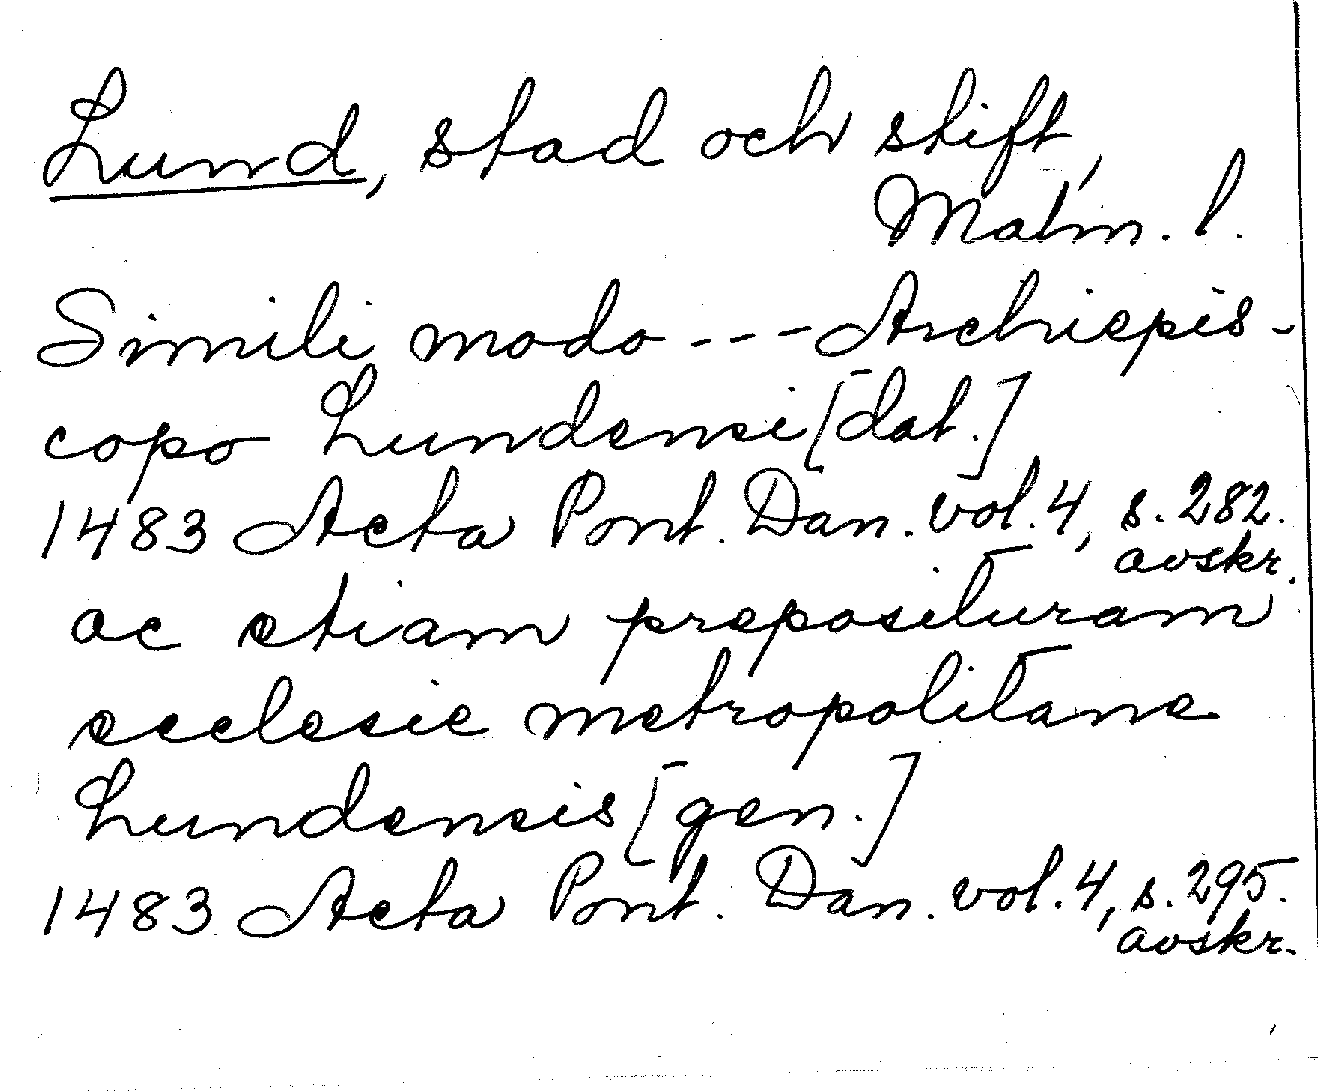 Lund, stad och stift,
Malm. l.
Simili modo --- Archiepis-
copo Lundensi [dat.]
1483 Acta Pont. Dan. vol. 4, s. 282.
avskr.
ac etiam preposituram
ecclesie metropolitane
Lundensis [gen.]
1483 Acta Pont. Dan. vol. 4, s. 295.
avskr.